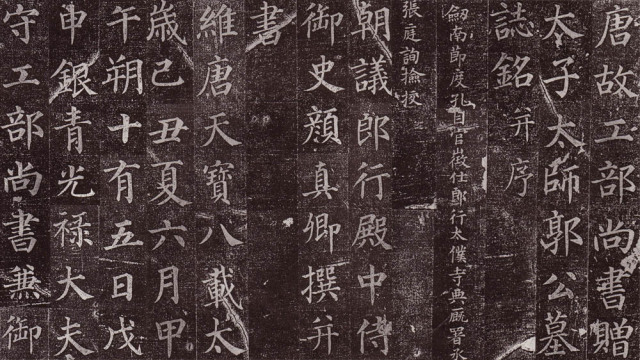 唐故工部尚書贈
太子太師郭公墓
誌銘并序
劒南節度孔目官徵仕郎行太僕寺典廐署丞
張庭詢撿挍
朝議郎行殿中侍
御史顏真卿撰并
書
維唐天寶八載太
歲己丑夏六月甲
午朔十有五日戊
申銀青光祿大夫
守工部尚書兼御